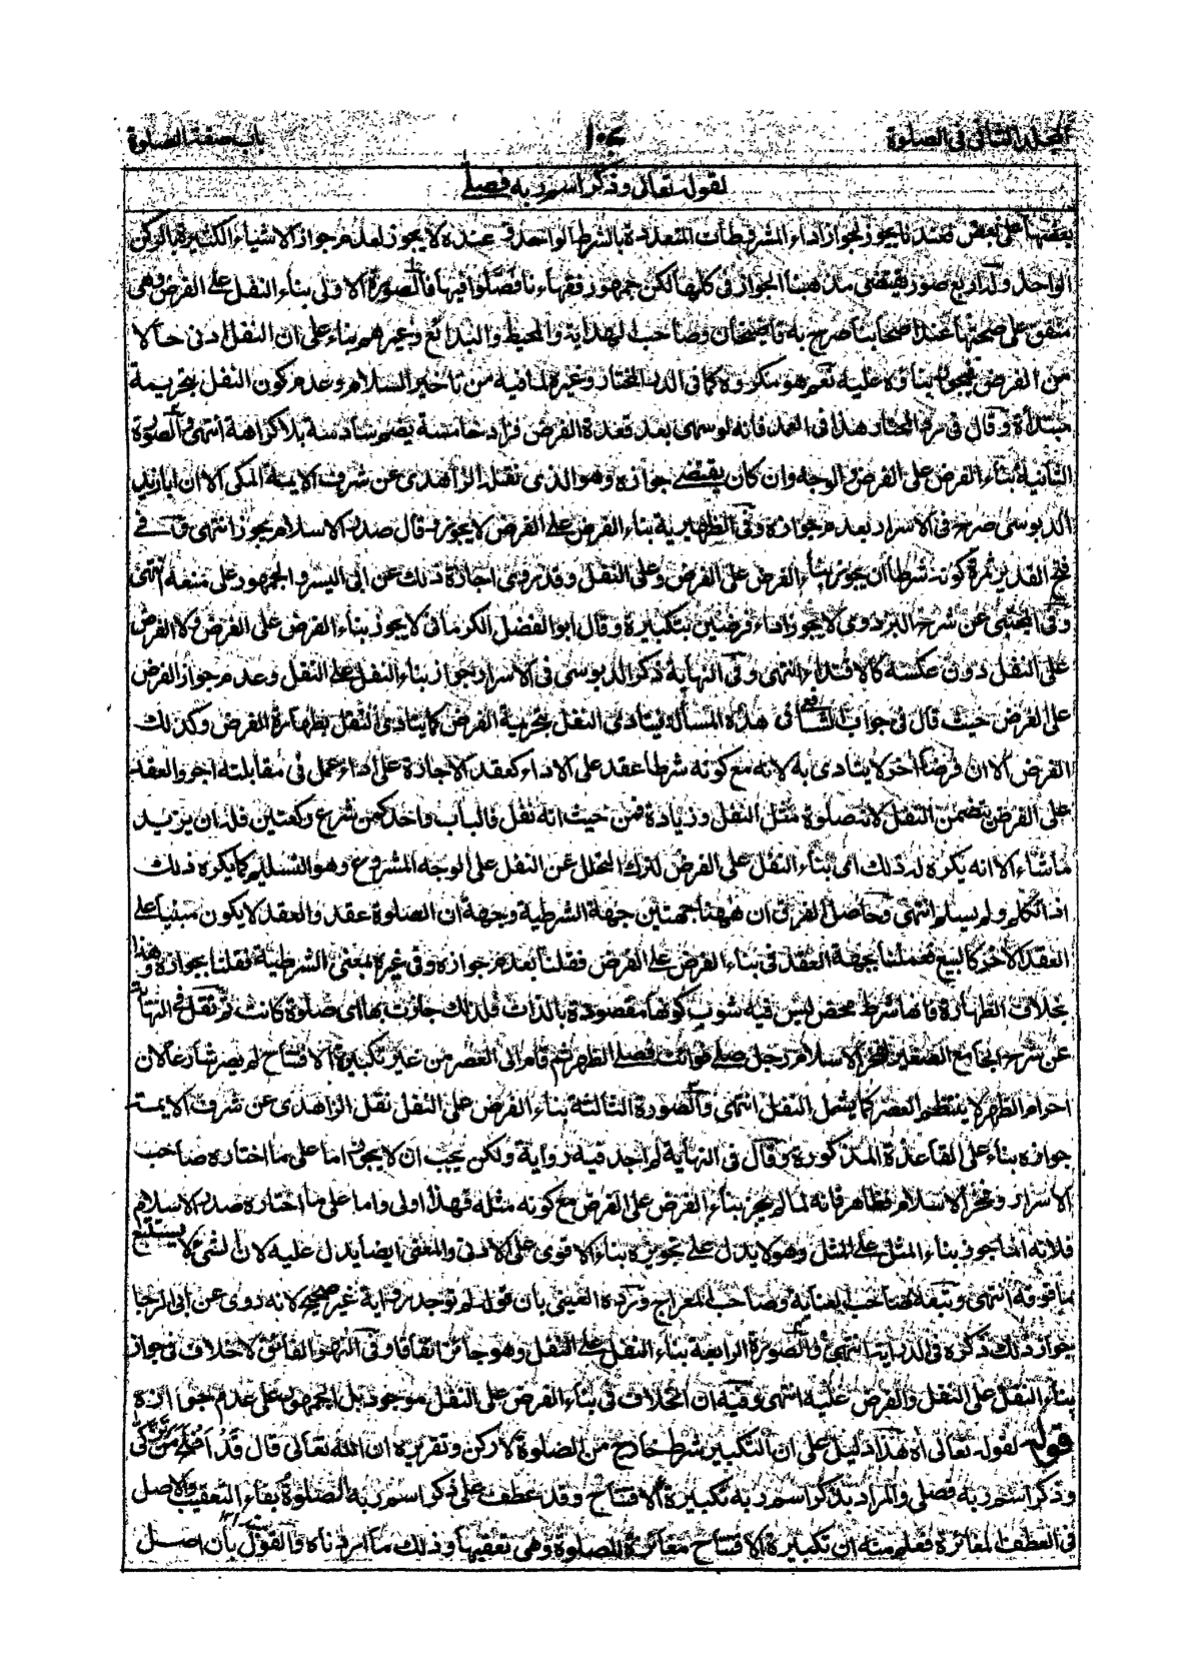 المجلد الثانی فی الصلوة ١٠٤ باب صفة الصلوة
لقوله تعالی وذکر اسم ربه فصلی
بعضها علی بعض فعندنا یجوز لجواز اداء المشروطات المتعددة بالشرط الواحد و عنده لا یجوز لعدم جواز الاشیاء الکثیرة بالرکن
الواحد ولہ اربع صور یقتضی مذهبنا الجواز فی کلها لکن جمهور فقهاءنا فصلوا فیها فالصورة الاولی بناء النفل علی الفرض وهی
متفق علی صحتها عند اصحابنا صرح به قاضیخان وصاحب الهدایة والمحیط والبدائع وغیرهم بناء علی ان النفل ادنی حالا
من الفرض فیجوز بناؤه علیه نعم هو مکروه کما فی الدر المختار وغیره لما فیه من تاخیر السلام وعدم کون النفل بتحریمة
مبتدأة وقال فی رد المحتار هذا فی العمد فانه لو سهی بعد قعدة الفرض فزاد خامسة یضم سادسة بلا کراهة انتهی والصورة
الثانیة بناء الفرض علی الفرض والوجه وان کان یقتضی جوازه وهو الذی نقله الزاهدی عن شرف الایمة المکی الا ان ابا زید
الدبوسی صرح فی الاسرار بعدم جوازه وفی الظهیریة بناء الفرض علی الفرض لا یجوز وقال صدر الاسلام یجوز انتهی وفی
فتح القدیر ثمرة کونه شرطا ان یجوز بناء الفرض علی الفرض وعلی النفل وقد روی اجازة ذلک عن ابی الیسر والجمهور علی منعه انتهی
وفی المجتبی عن شرح البزدوی لا یجوز اداء فرضین بتکبیرة وقال ابو الفضل الکرمانی لا یجوز بناء الفرض علی الفرض ولا الفرض
علی النفل دون عکسه کالاقتداء انتهی وفی النهایة ذکر الدبوسی فی الاسرار جواز بناء النفل علی النفل وعدم جواز الفرض
علی الفرض حیث قال فی جواب الشافعی فی هذه المسألة یتادی النفل بتحریمة الفرض کما یتادی النفل بطهارة الفرض وکذلک
الفرض الا ان فرضا آخر لا یتادی به لانه مع کونه شرطا عقد علی الاداء کعقد الاجارة علی اداء عمل فی مقابلته اجر والعقد
علی الفرض یتضمن النفل لانه صلوة مثل النفل وزیادة فمن حیث انه نفل فالباب واحد کمن شرع رکعتین فله ان یزید
ما شاء الا انه یکره له ذلک ای بناء النفل علی الفرض لترک التحلل عن النفل علی الوجه المشروع وهو التسلیم کما یکره ذلک
اذا تکلم ولم یسلم انتهی وحاصل الفرق ان ههنا جهتین جهة الشرطیة وجهة ان الصلوة عقد والعقد لا یکون مبنیا علی
العقد الآخر کالبیع فعملنا بجهة العقد فی بناء الفرض علی الفرض فقلنا بعدم جوازه وفی غیره بمعنی الشرطیة فقلنا بجوازه وهذا
بخلاف الطهارة فانها شرط محض لیس فیه شوب کونها مقصودة بالذات فلذلک جازت بها ای صلوة کانت ثم نقل فی النهایة
عن شرح الجامع الصغیر لفخر الاسلام رجل صلی فصلی الظهر ثم قام الی العصر من غیر تکبیرة الافتتاح لم یصر شارعا لان
احرام الظهر لا ینتظم العصر کما یشمل النفل انتهی والصورة الثالثة بناء الفرض علی النفل نقل الزاهدی عن شرف الایمة
جوازه بناء علی القاعدة المذکورة وقال فی النهایة لم اجد فیه روایة ولکن یجب ان لا یجوز اما علی ما اختاره صاحب
الاسرار وفخر الاسلام فظاهر فانه لما لم یجز بناء الفرض علی الفرض مع کونه مثله فهذا اولی واما علی ما اختاره صدر الاسلام
فلانه انما یجوز بناء المثل علی المثل وهو لا یدل علی تجویزه بناء الاقوی علی الادنی والمعنی ایضا یدل علیه لان الشیء لا یستتبع
ما فوقه انتهی وتبعه صاحب العنایة وصاحب المعراج ورده العینی بان قوله لم توجد روایة غیر صحیح لانه روی عن ابی الرجا
جواز ذلک ذکره فی الدرایة انتهی والصورة الرابعة بناء النفل علی النفل وهو جائز اتفاقا وفی النهر الفائق لا خلاف فی جواز
بناء النفل علی النفل والفرض علیه انتهی وفیه ان الخلاف فی بناء الفرض علی النفل موجود بل الجمهور علی عدم جوازه
قوله لقوله تعالی اه هذا دلیل علی ان التکبیر شرط خارج من الصلوة لا رکن وتقریره ان الله تعالی قال قد افلح من تزکی
وذکر اسم ربه فصلی والمراد بذکر اسم ربه تکبیرة الافتتاح وقد عطف علی ذکر اسم ربه الصلوة بفاء التعقیب والاصل
فی العطف المغائرة فعلم منه ان تکبیرة الافتتاح مغائرة للصلوة وهی تعقیبها وذلک ما اردناه والقول بان اصل